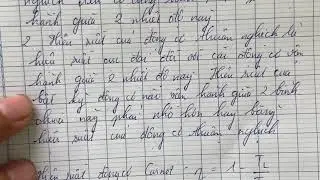 hành giữa 2 nhiệt độ này
2 Hiệu suất của động cơ thuận nghịch là
hiệu suất cực đại đối với các động cơ vận
hành giữa 2 nhiệt độ này Hiệu suất của
bất kỳ động cơ nào vận hành giữa 2 bình
chứa này phải nhỏ hơn hay bằng
hiệu suất của động cơ thuận nghịch
Hiệu suất động cơ Carnot η = 1 - TL